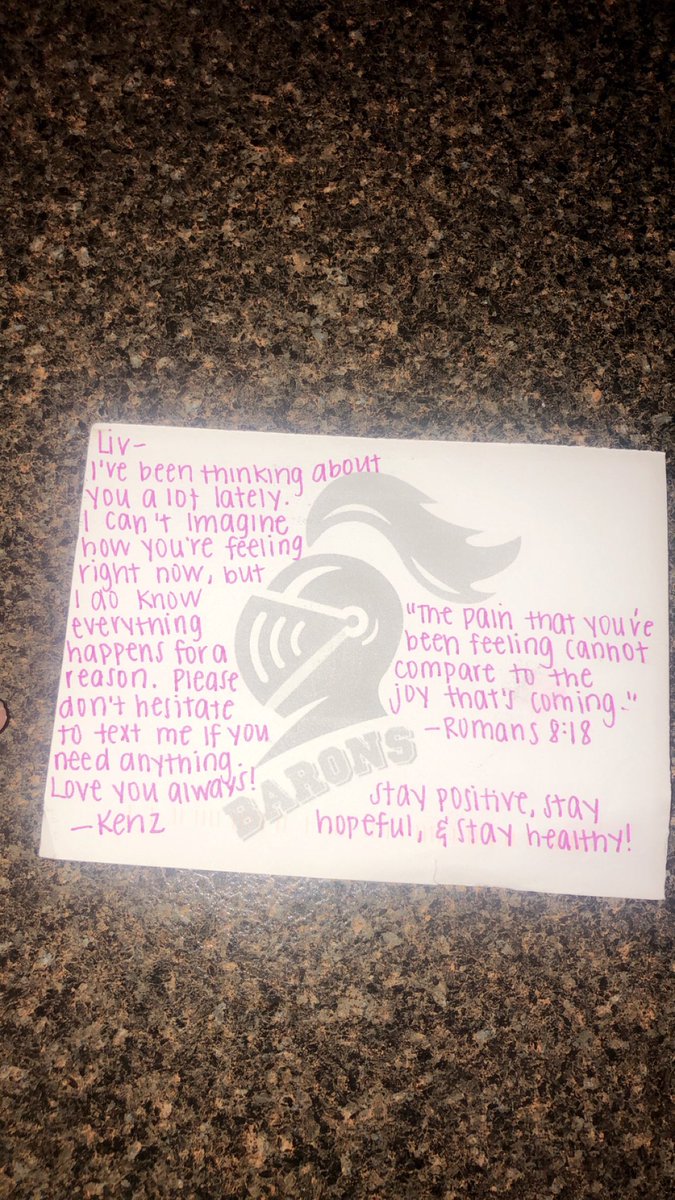 Liv-
I've been thinking about
you a lot lately.
I can't imagine
how you're feeling
right now, but
I do know
everything
happens for a
reason. Please
don't hesitate
to text me if you
need anything.
Love you always!
-Kenz
"The pain that you've
been feeling cannot
compare to the
joy that's coming."
-Romans 8:18
Stay positive, stay
hopeful, & stay healthy!
BARONS